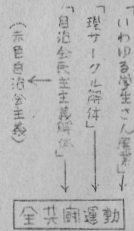 「いわゆる学生さん屋業」
「理サークル解体」
「自治会民主主義解体」
(赤色自治会主義)
全共闘運動